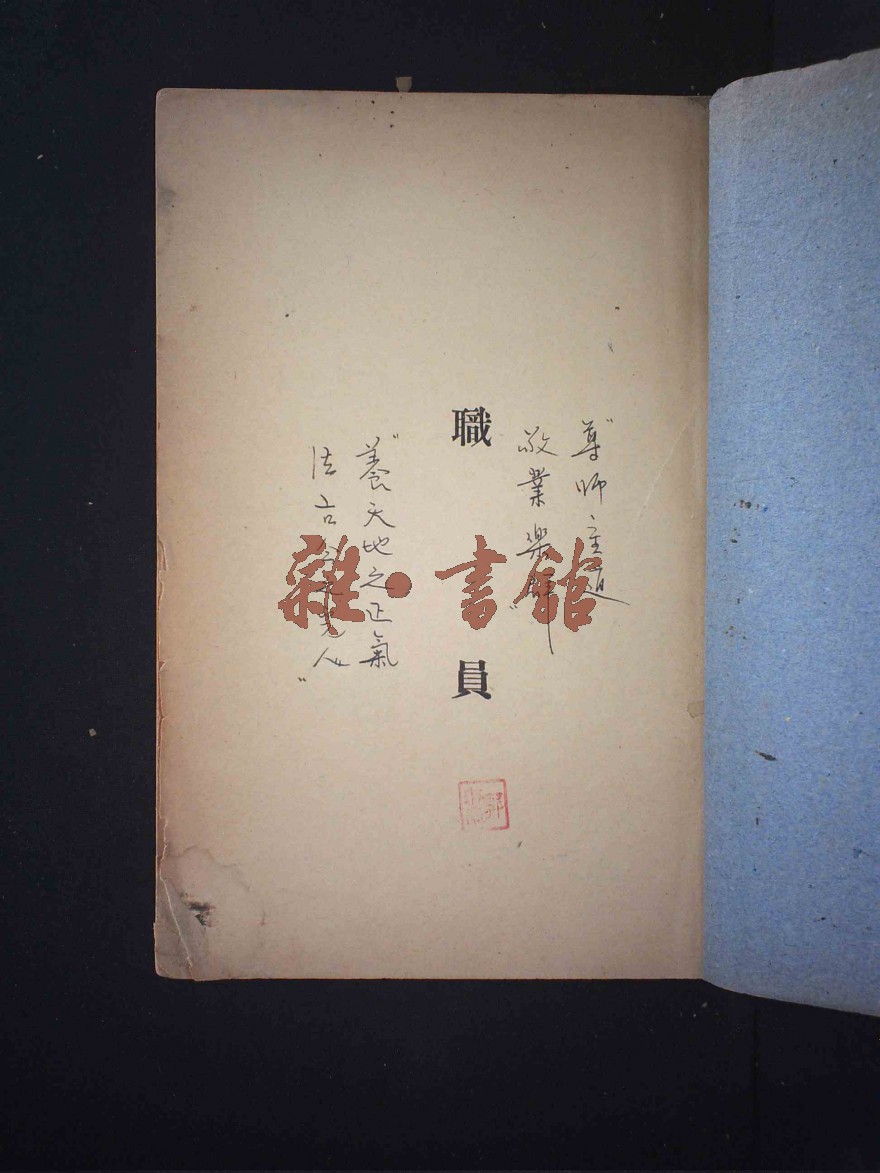 "尊師重道
敬業樂群"
職員
"養天地之正氣
法古今之完人"
雜·書館
郭